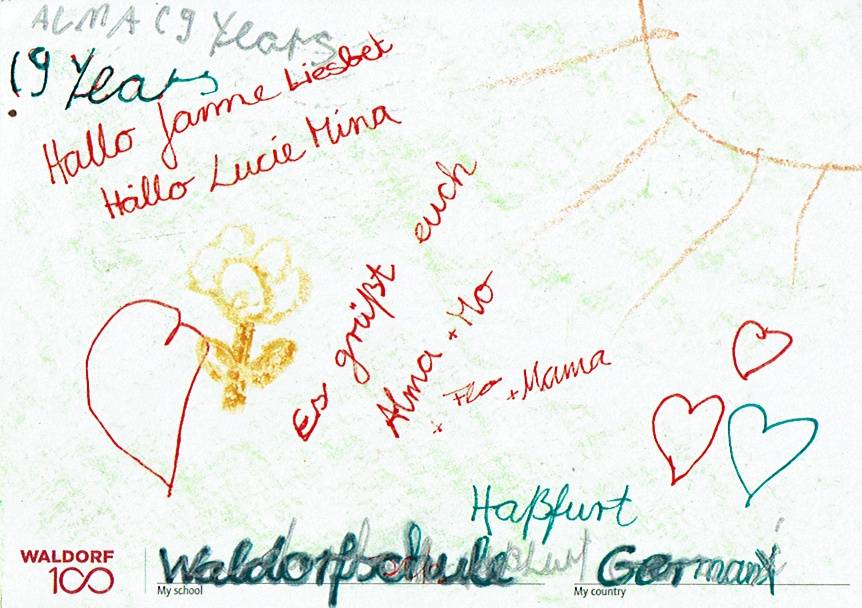 ALMA (9 Years
(9 Years
Hallo Janne Liesbet
Hallo Lucie Mina
Es grüßt euch
Alma + Mo
+ Flo + Mama
Haßfurt
WALDORF
100
Waldorfschule
My school
Germany
My country